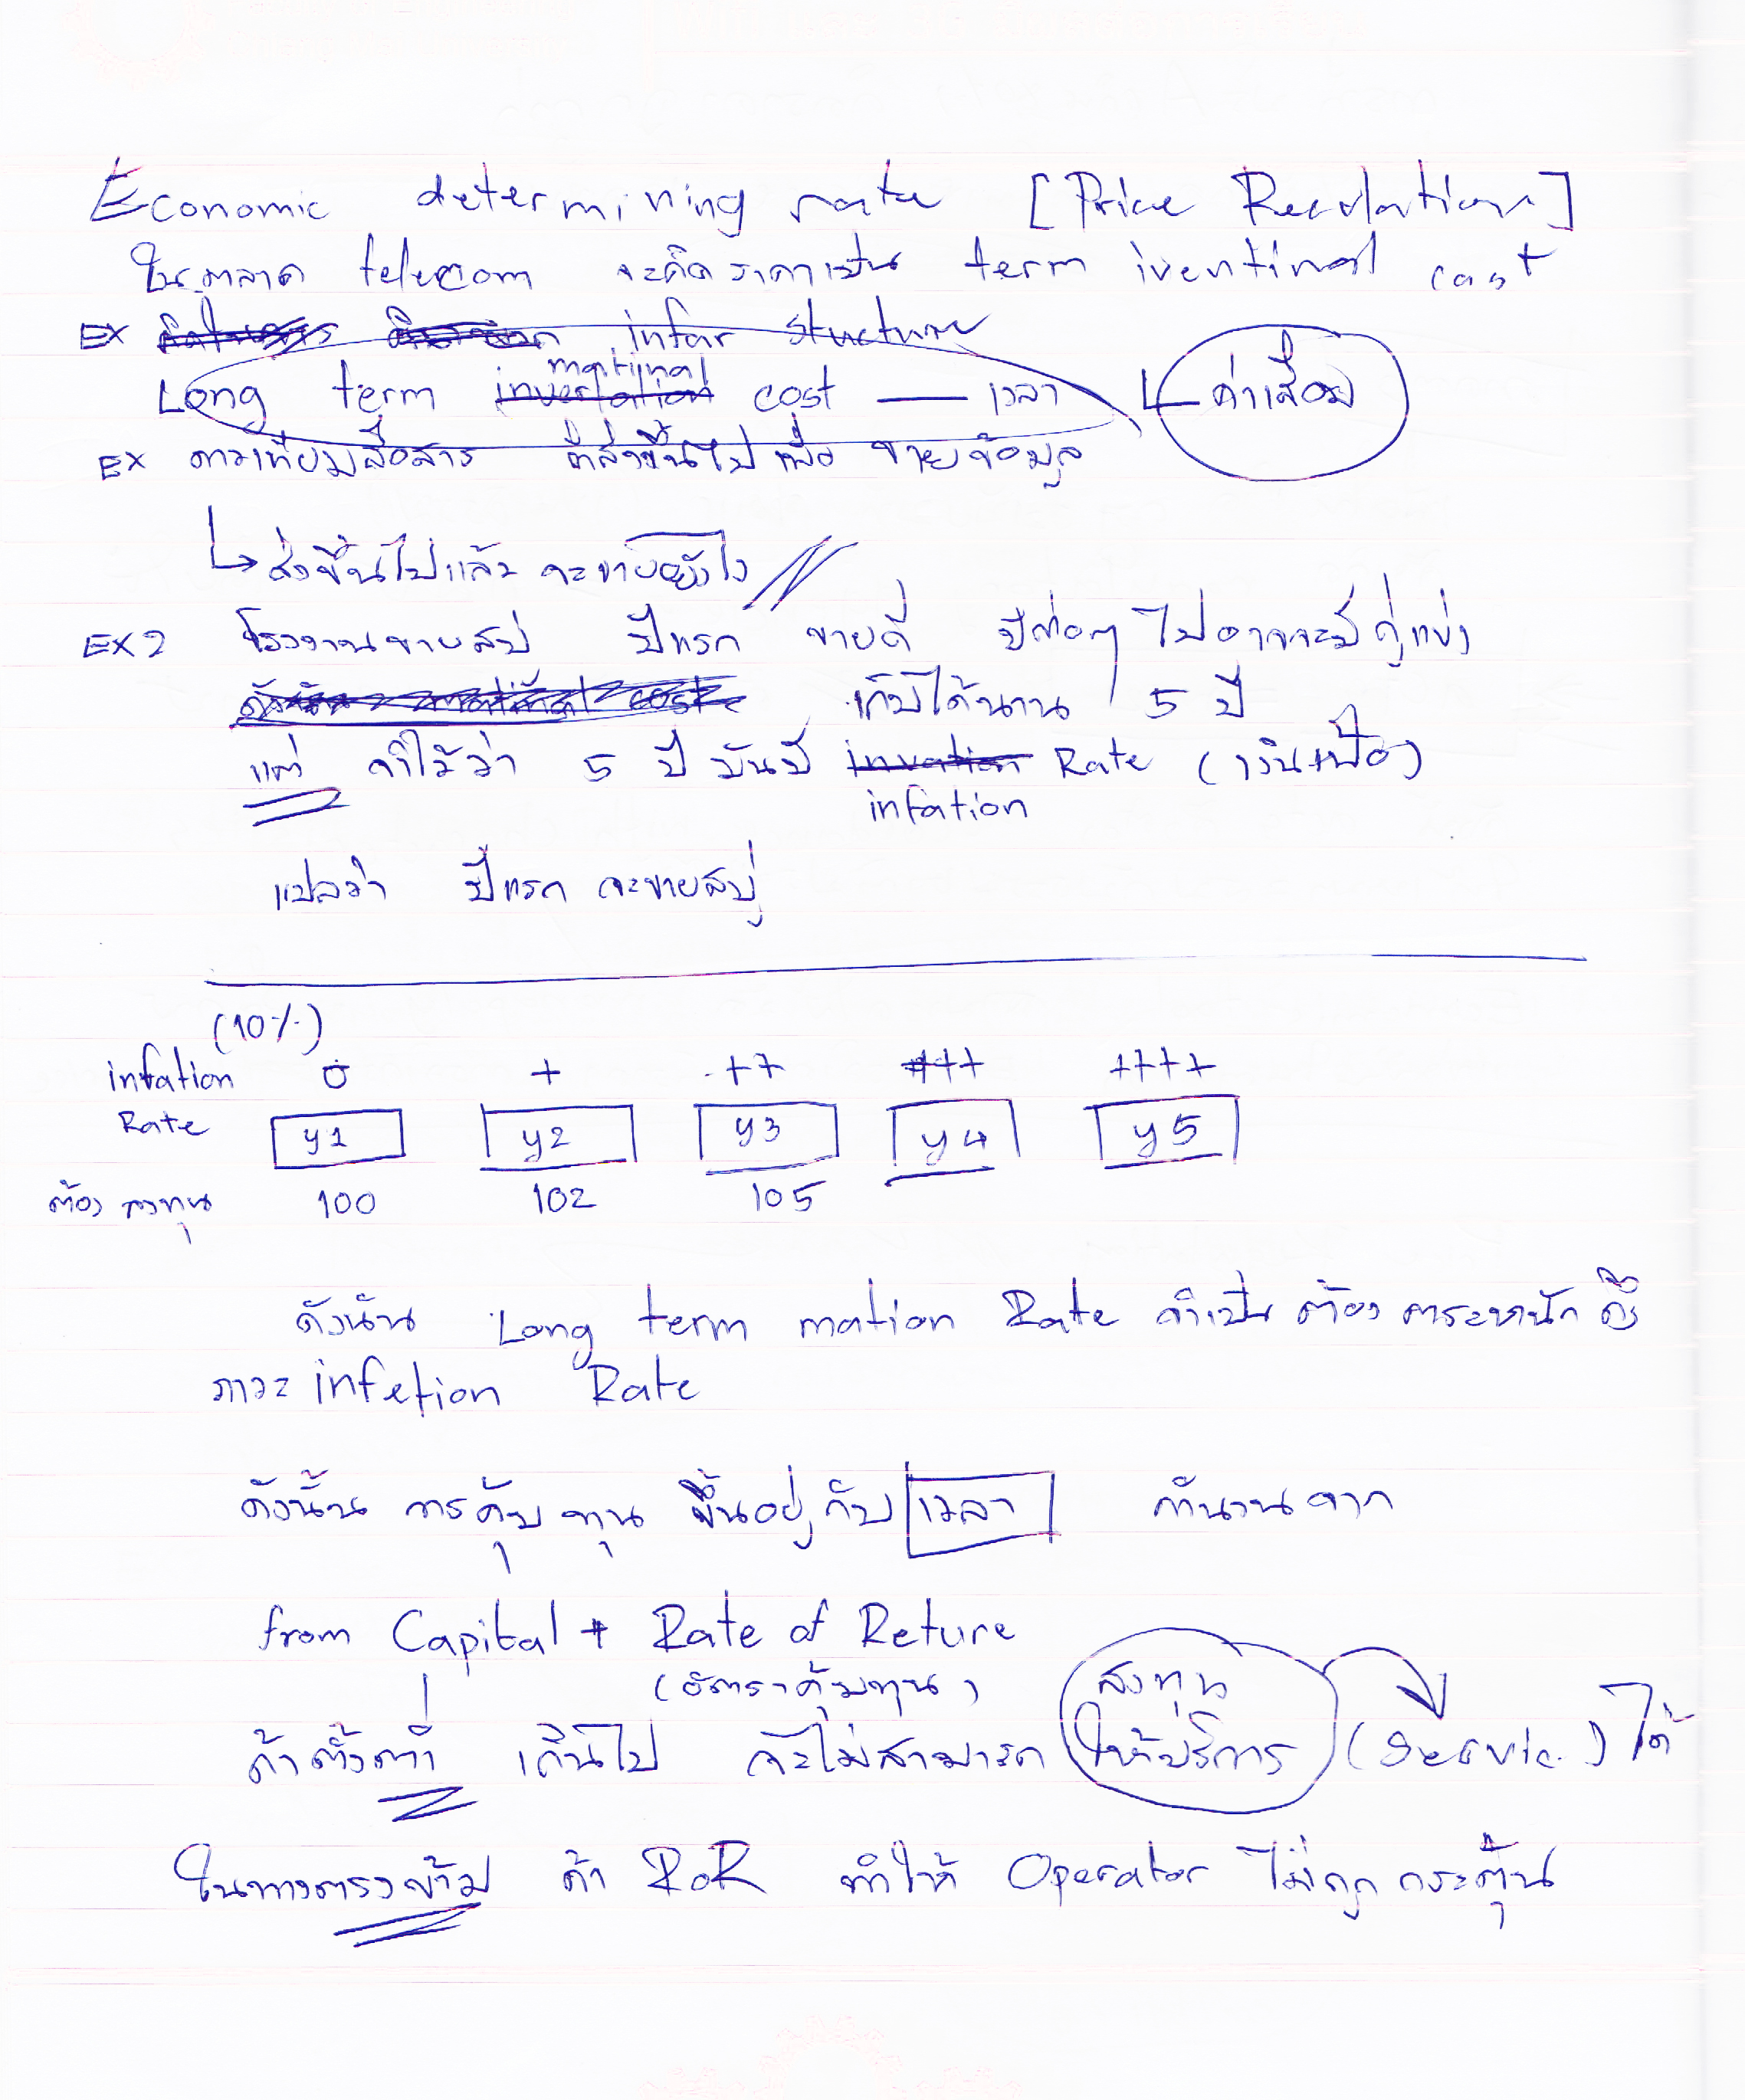 Economic determining rate [Price Reculation]
ในตลาด telecom จะคิดราคาเป็น term iventinal cost
EX infar structure
Long term martinal cost — เวลา ค่าเสื่อม
EX ดาวเทียมสื่อสาร ที่ส่งขึ้นไปเพื่อ ขายข้อมูล
ส่งขึ้นไปแล้ว จะขายยังไง
EX2 โรงงานขายสบู่ ปีแรก ขายดี ปีต่อๆ ไปอาจจะมีคู่แข่ง
เก็บได้นาน 5 ปี
แต่ จำไว้ว่า 5 ปี มันมี Rate (เงินเฟ้อ)
infation
แปลว่า ปีแรก จะขายสบู่
(10%)
infation 0 + ++ +++ ++++
Rate y1 y2 y3 y4 y5
ต้อง ลงทุน 100 102 105
ดังนั้น Long term mation Rate จำเป็น ต้อง ตระหนัก ถึง
ภาวะ infetion Rate
ดังนั้น การคุ้มทุน ขึ้นอยู่กับ เวลา คำนวนจาก
from Capital + Rate of Reture
(อัตราคุ้มทุน) ลงทุน
ถ้าตั้งต่ำ เกินไป จะไม่สามารถ ให้บริการ (Servic.) ได้
ในทางตรงข้าม ถ้า RoR ทำให้ Operator ไม่ถูกกระตุ้น